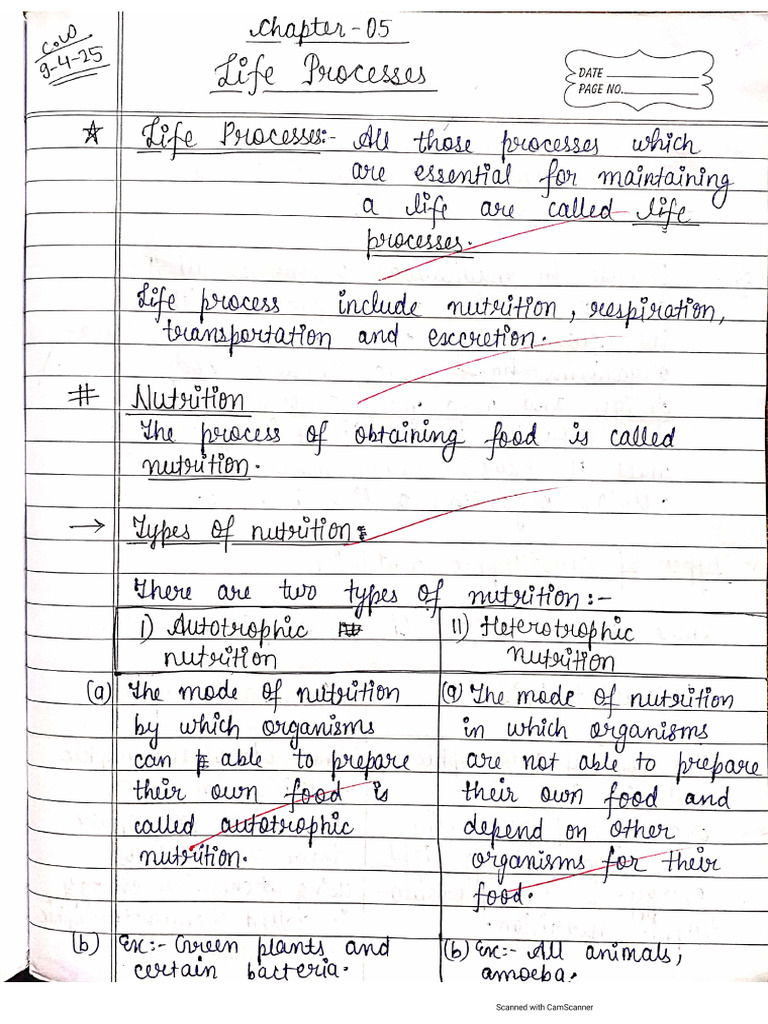 C.W
9-4-25
Chapter-05
Life Processes
DATE
PAGE NO.
☆ Life Processes:- All those processes which
are essential for maintaining
a life are called life
processes.
Life process include nutrition, respiration,
transportation and excretion.
# Nutrition
The process of obtaining food is called
nutrition.
→ Types of nutrition:
There are two types of nutrition:-
i) Autotrophic
nutrition
ii) Heterotrophic
nutrition
(a) The mode of nutrition
by which organisms
can able to prepare
their own food is
called autotrophic
nutrition.
(a) The mode of nutrition
in which organisms
are not able to prepare
their own food and
depend on other
organisms for their
food.
(b) Ex:- Green plants and
certain bacteria.
(b) Ex:- All animals,
amoeba.
Scanned with CamScanner